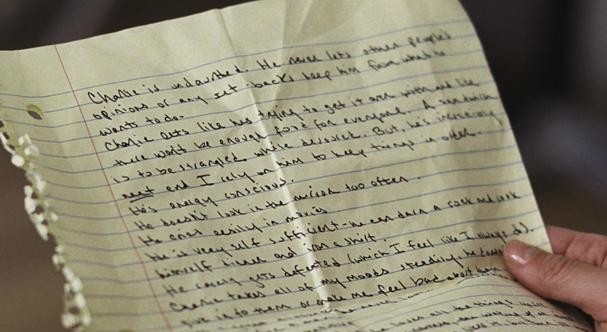 Charlie is undaunted. He never lets other people's
opinions or any set-backs keep him from what he
wants to do.
Charlie acts like he's trying to get it over with and like
there won't be enough for everyone. A
is to be strangled while devoured. But, he's incredibly
neat and I rely on him to keep things in order.
He's energy conscious.
He doesn't look in the mirror too often.
He cries easily in movies
He is very self sufficient - he can darn a sock and cook
himself dinner and iron a shirt.
He rarely gets defeated (which I feel like I always do).
Charlie takes all of my moods steadily. He doesn't
give in to them or make me feel bad about